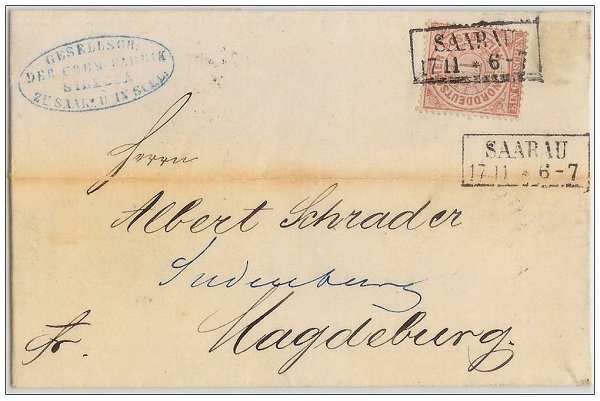 GESELLSCH.
DER CHEM. FABRIK
SILESIA
ZU SAARAU IN SCHL.
SAARAU
17 11 * 6-7
NORDDEUTSCHER
EIN GROSCHEN
SAARAU
17 11 * 6-7
Herrn
Albert Schrader
Sudenburg
Magdeburg.
Fr.